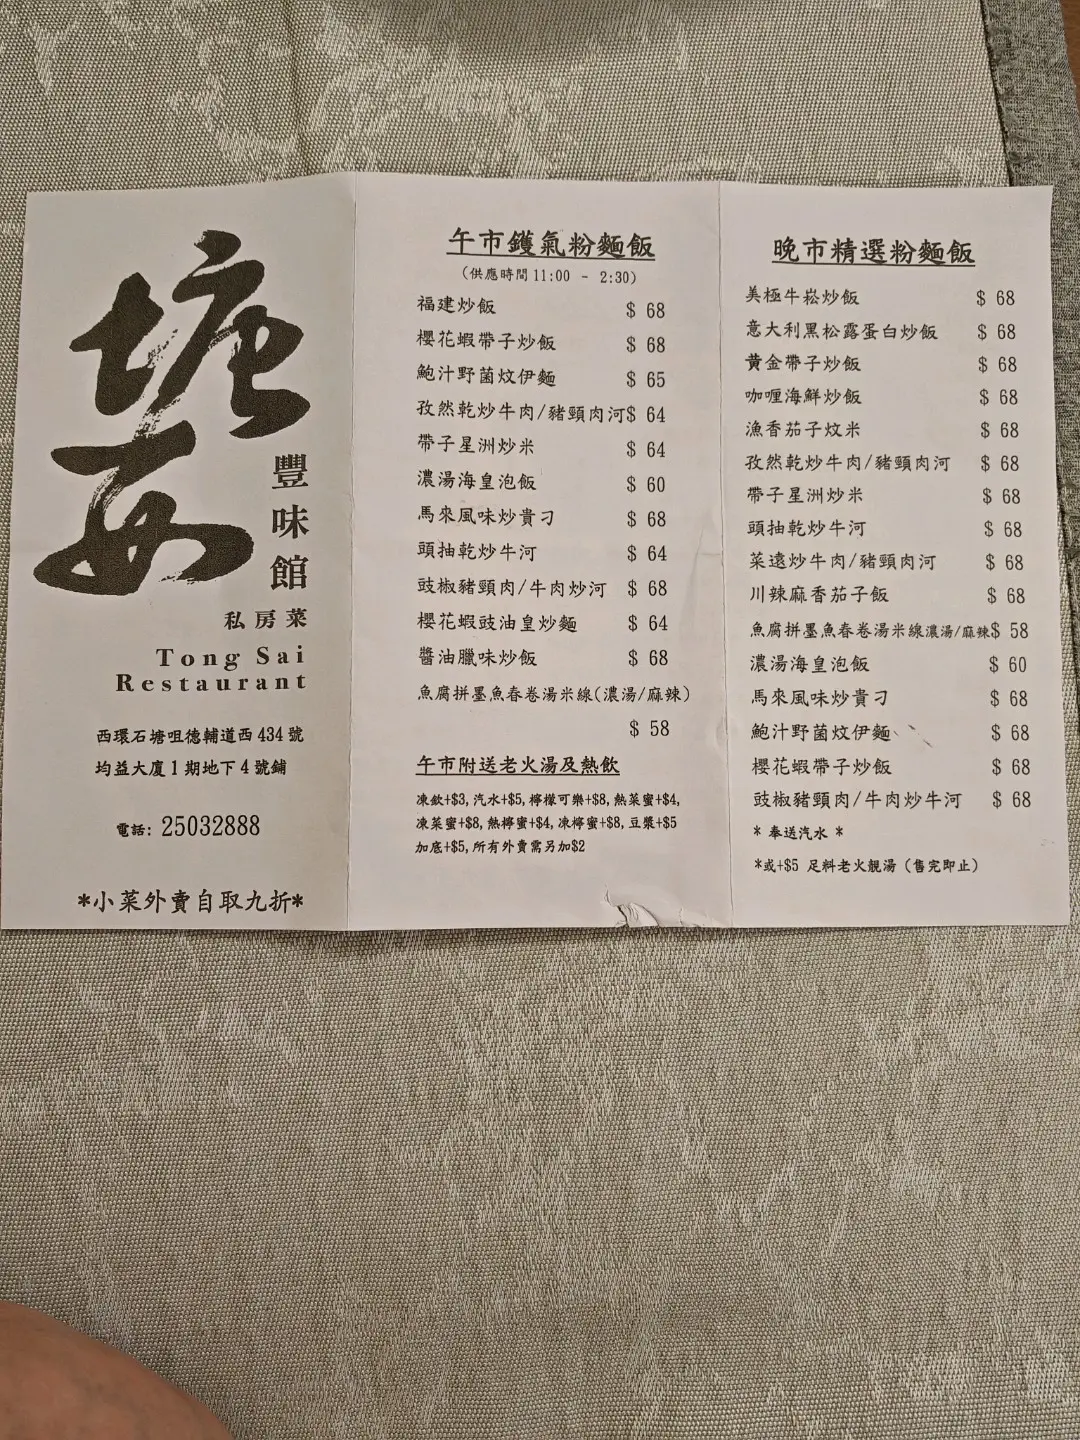 塘西
豐味館
私房菜
Tong Sai
Restaurant
西環石塘咀德輔道西434號
均益大廈1期地下4號鋪
電話: 25032888
*小菜外賣自取九折*
午市鑊氣粉麵飯
(供應時間11:00 - 2:30)
福建炒飯 $ 68
櫻花蝦帶子炒飯 $ 68
鮑汁野菌炆伊麵 $ 65
孜然乾炒牛肉/豬頸肉河$ 64
帶子星洲炒米 $ 64
濃湯海皇泡飯 $ 60
馬來風味炒貴刁 $ 68
頭抽乾炒牛河 $ 64
豉椒豬頸肉/牛肉炒河 $ 68
櫻花蝦豉油皇炒麵 $ 64
醬油臘味炒飯 $ 68
魚腐拼墨魚春卷湯米線(濃湯/麻辣)
$ 58
午市附送老火湯及熱飲
凍飲+$3, 汽水+$5, 檸檬可樂+$8, 熱菜蜜+$4,
凍菜蜜+$8, 熱檸蜜+$4, 凍檸蜜+$8, 豆漿+$5
加底+$5, 所有外賣需另加$2
晚市精選粉麵飯
美極牛崧炒飯 $ 68
意大利黑松露蛋白炒飯 $ 68
黃金帶子炒飯 $ 68
咖喱海鮮炒飯 $ 68
漁香茄子炆米 $ 68
孜然乾炒牛肉/豬頸肉河 $ 68
帶子星洲炒米 $ 68
頭抽乾炒牛河 $ 68
菜遠炒牛肉/豬頸肉河 $ 68
川辣麻香茄子飯 $ 68
魚腐拼墨魚春卷湯米線濃湯/麻辣$ 58
濃湯海皇泡飯 $ 60
馬來風味炒貴刁 $ 68
鮑汁野菌炆伊麵 $ 68
櫻花蝦帶子炒飯 $ 68
豉椒豬頸肉/牛肉炒牛河 $ 68
* 奉送汽水 *
*或+$5 足料老火靚湯 (售完即止)